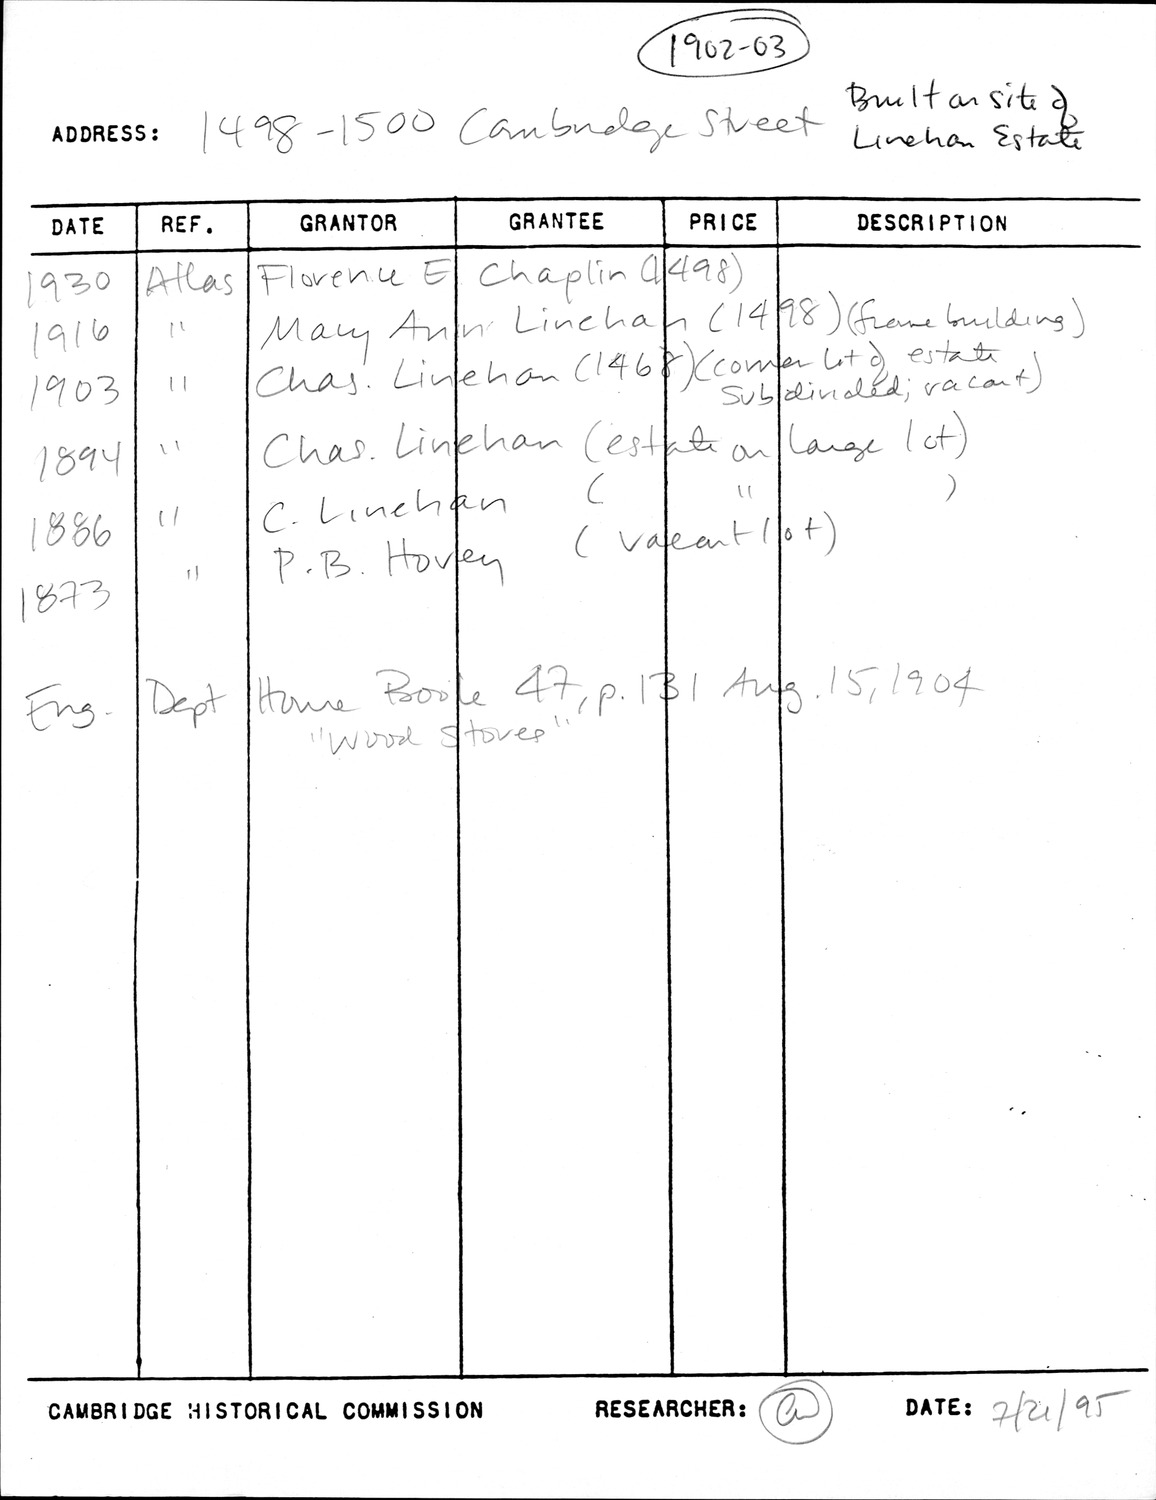 1902-03
Built on site of
ADDRESS: 1498-1500 Cambridge Street
Linehan Estate
DATE REF. GRANTOR GRANTEE PRICE DESCRIPTION
1930 Atlas Florence E Chaplin (1498)
1916 " Mary Ann Linehan (1498) (frame building)
1903 " Chas. Linehan (1468) (corner lot of estate
subdivided; vacant)
1894 " Chas. Linehan (estate on large lot)
1886 " C. Linehan ( " )
1873 " P.B. Hovey (vacant lot)
Eng. Dept House Book 47, p. 131 Aug. 15, 1904
"Wood Stores"
CAMBRIDGE HISTORICAL COMMISSION RESEARCHER: DATE: 7/21/95